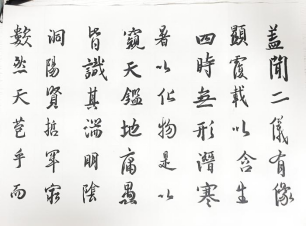 盖聞二儀有像
顯覆載以含生
四時無形潛寒
暑以化物是以
窺天鑑地庸愚
皆識其端明陰
洞陽賢哲罕窮
數然天苞乎而